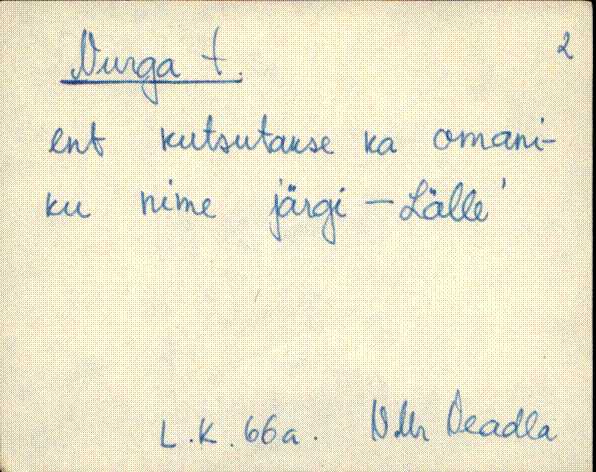 2
Nurga t.
ent kutsutakse ka omani-
ku nime järgi – Lälle'
L.K. 66a. Veadla